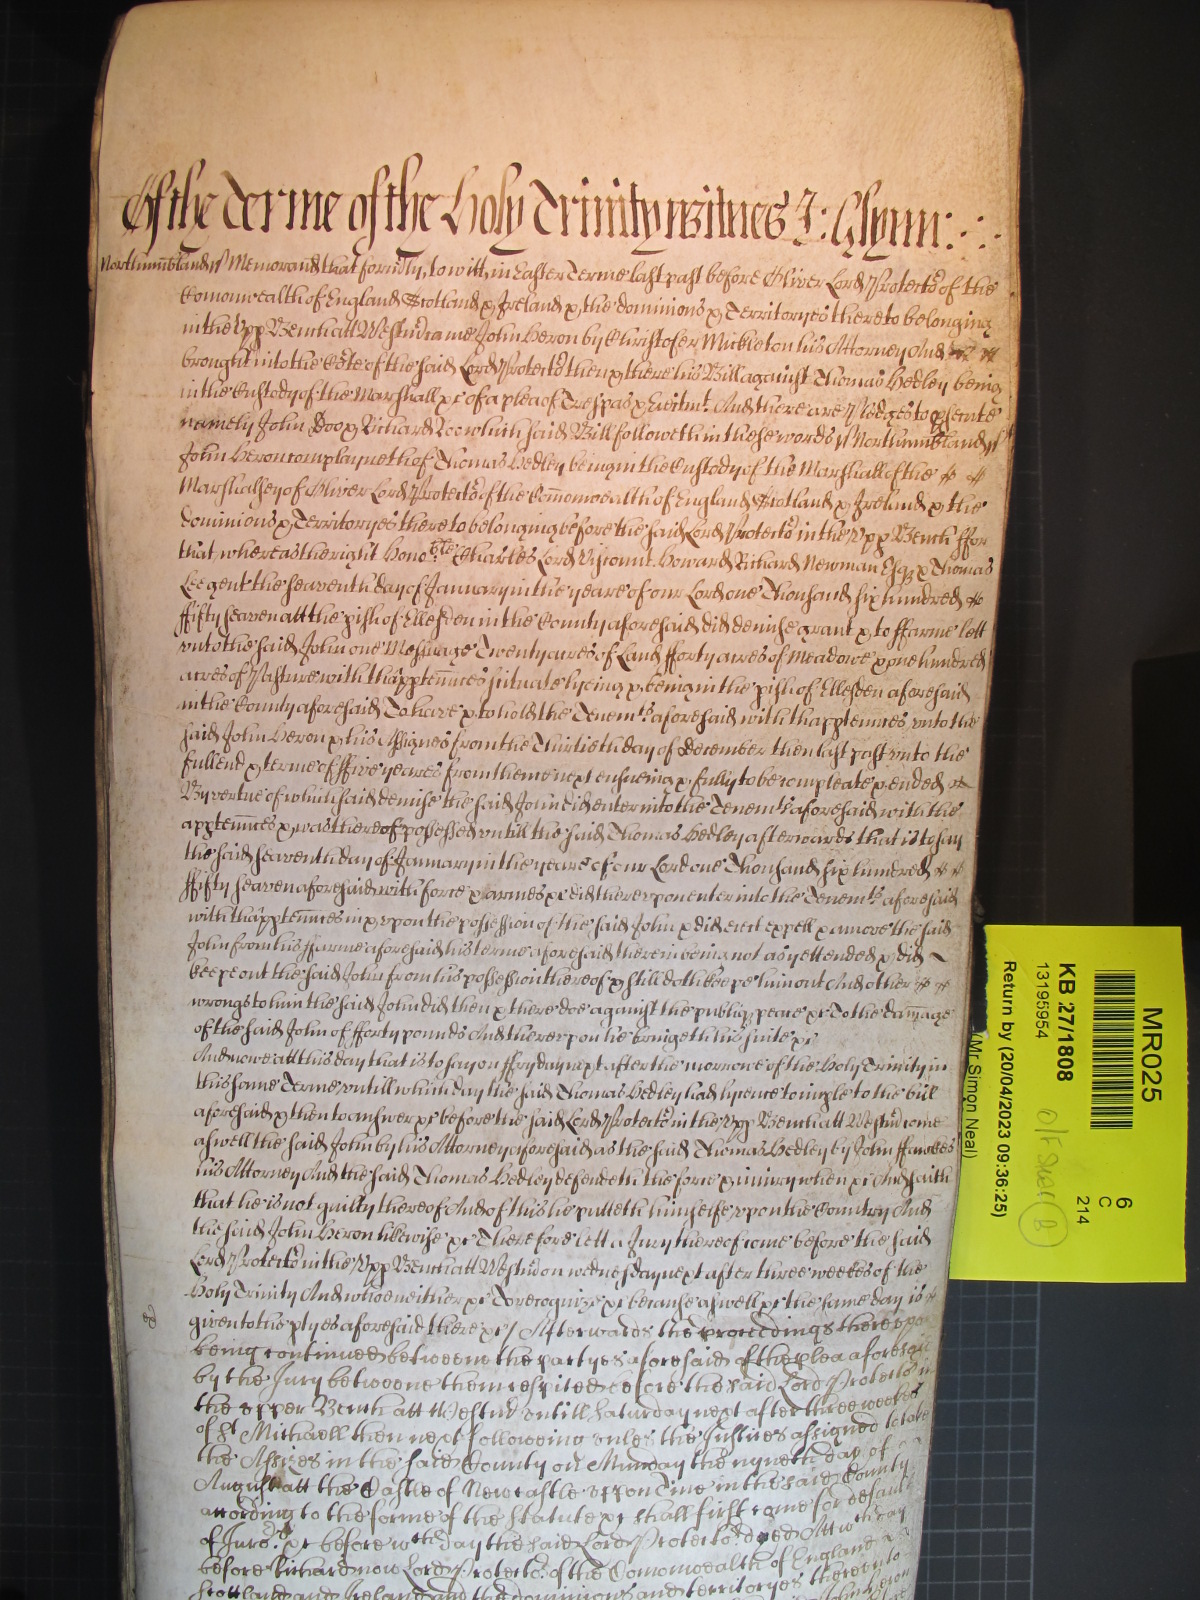 Of the Terme of the Holy Trinity witnes J: Glynn:
Northumbland ss Memorand that formerly, to witt, in Easter Terme last past before Oliver Lord Protector of the
Comonwealth of England Scotland & Ireland & the dominions & Territoryes thereto belonging
in the Upp Bench att Westm came John Heron by Christofer Mickleton his Attorney And
brought into the Cote of the said Lord Protector then & there his Bill against Thomas Hedley being
in the Custody of the Marshall &c of a plea of Trespas & Eictmt. And there are Pledges to psecute
namely John Doo & Richard Roo which said Bill followeth in these words ss Northumbland ss
John Heron complayneth of Thomas Hedley being in the Custody of the Marshall of the
Marshalsey of Oliver Lord Protector of the Comonwealth of England Scotland & Ireland & the
dominions & Territoryes thereto belonging before the said Lord Protector in the Upp Bench ffor
that whereas the right Honoble Charles Lord Viscount Howard Richard Newman Esqr & Thomas
Lee gent the seaventh day of January in the yeare of our Lord one Thousand six hundred
fifty seaven att the pish of Ellesden in the County aforesaid did demise grant & to ffarme lett
unto the said John one Messuage Twenty acres of Land fforty acres of Meadowe & one hundred
acres of Pasture with thapptennces scituate lyeing & being in the pish of Ellesden aforesaid
in the County aforesaid To have & to hold the Tenemts aforesaid with thapptennces unto the
said John Heron & his Assignes from the Thirtieth day of December then last past unto the
full end & terme of ffive yeares from thence next ensueing & fully to be compleate & ended
By vertue of which said demise the said John did enter into the Tenemts aforesaid with the
apptennces & was thereof possessed untill the said Thomas Hedley afterwards that is to say
the said seaventh day of January in the yeare of our Lord one Thousand six hundred
ffifty seaven aforesaid with force & armes &c did thereupon enter into the Tenemts aforesaid
with thapptennces in & upon the possession of the said John & did eiect expell & amove the said
John from his ffarme aforesaid his terme aforesaid therein being not as yett ended & did
keepe out the said John from his possession thereof & still doth keepe him out And other
wrongs to him the said John did then & there doe against the publiq peace &c To the damage
of the said John of fforty pounds And thereupon he bringeth his suite &c
And nowe att this day that is to say on ffryday next after the morrowe of the Holy Trinity in
this same Terme untill which day the said Thomas Hedley had lycence to imple to the bill
aforesaid & then to answer &c before the said Lord Protector in the Upp Bench att Westm come
aswell the said John by his Attorney aforesaid as the said Thomas Hedley by John
his Attorney And the said Thomas Hedley defendeth the force & iniury when &c And saith
that he is not guilty thereof And of this he putteth himselfe upon the Country And
the said John Heron likewise &c Therefore lett a Jury thereof come before the said
Lord Protector in the Upp Bench att Westm on wednesday next after three weekes of the
Holy Trinity And who neither &c To recognize &c because aswell &c the same day is
given to the ptyes aforesaid there &c / Afterwards the proceedings thereupon
being continued betweene the partyes aforesaid of the plea aforesaid
by the Jury betweene them respited before the said Lord Protector in
the upper Bench att Westm untill Saturday next after three weekes
of St Michaell then next following unles the Justices assigned to take
the Assizes in the said County on Munday the nyneth day of
August att the Castle of Newcastle uppon Tine in the said County
according to the forme of the Statute &c shall first come for default
of Juro:rs &c before wch day the said Lord Protector dyed Att wch day
before Richard now Lord Protector of the Comonwealth of England &
Scotland and Ireland and the dominions and territoryes thereunto
MR025
6
C
214
KB 27/1808
13195954
O/F Shelf (B)
Return by (20/04/2023 09:36:25)
(Mr Simon Neal)